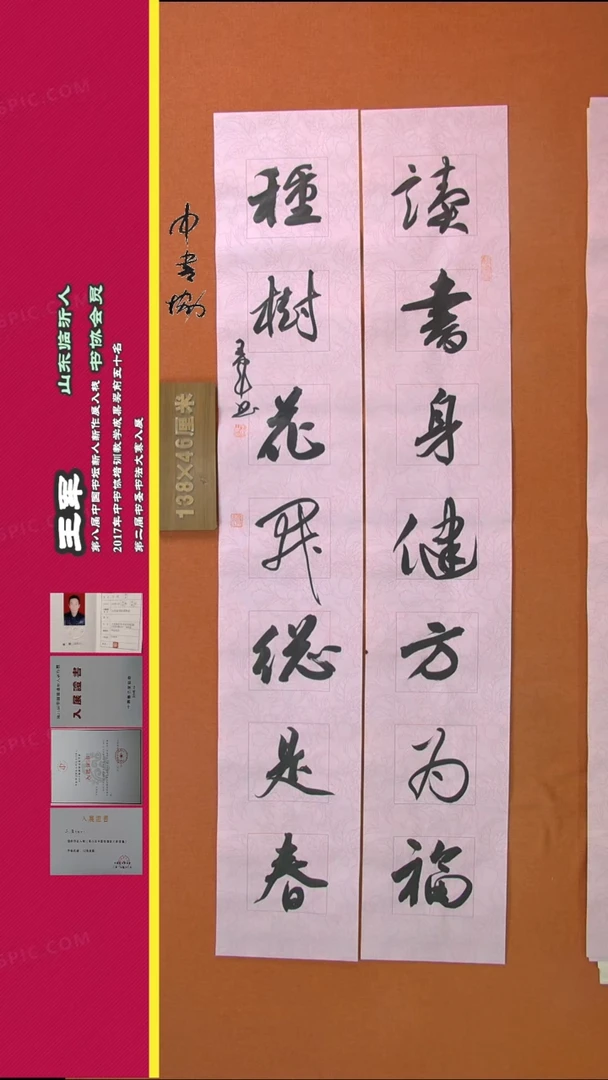 讀書身健方为福
種樹花開総是春
王軍书
中書协
138×46厘米
王军
山东临沂人 书协会员
第八届中国书坛新人新作展入展
2017年中书协培训教学成果奖前五十名
第二届书圣书法大赛入展
入展證書